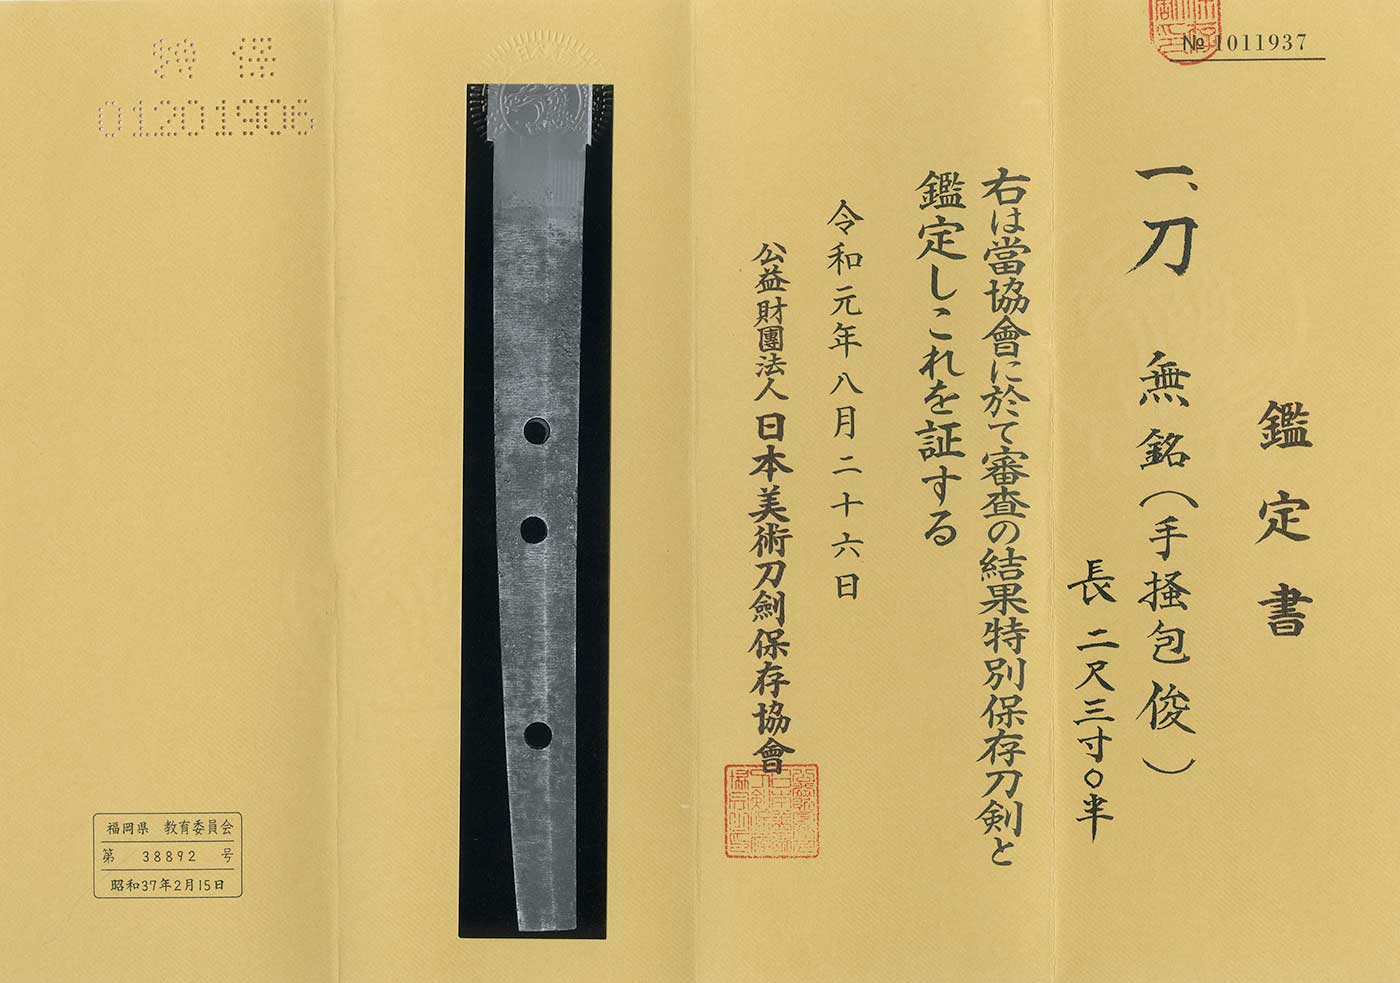 № 1011937
鑑定書
一、刀 無銘(手掻包俊)
長 二尺三寸〇半
右は當協會に於て審査の結果特別保存刀剣と
鑑定しこれを証する
令和元年八月二十六日
公益財團法人 日本美術刀劍保存協會
特 保
01201906
福岡県 教育委員会
第 38892 号
昭和37年2月15日